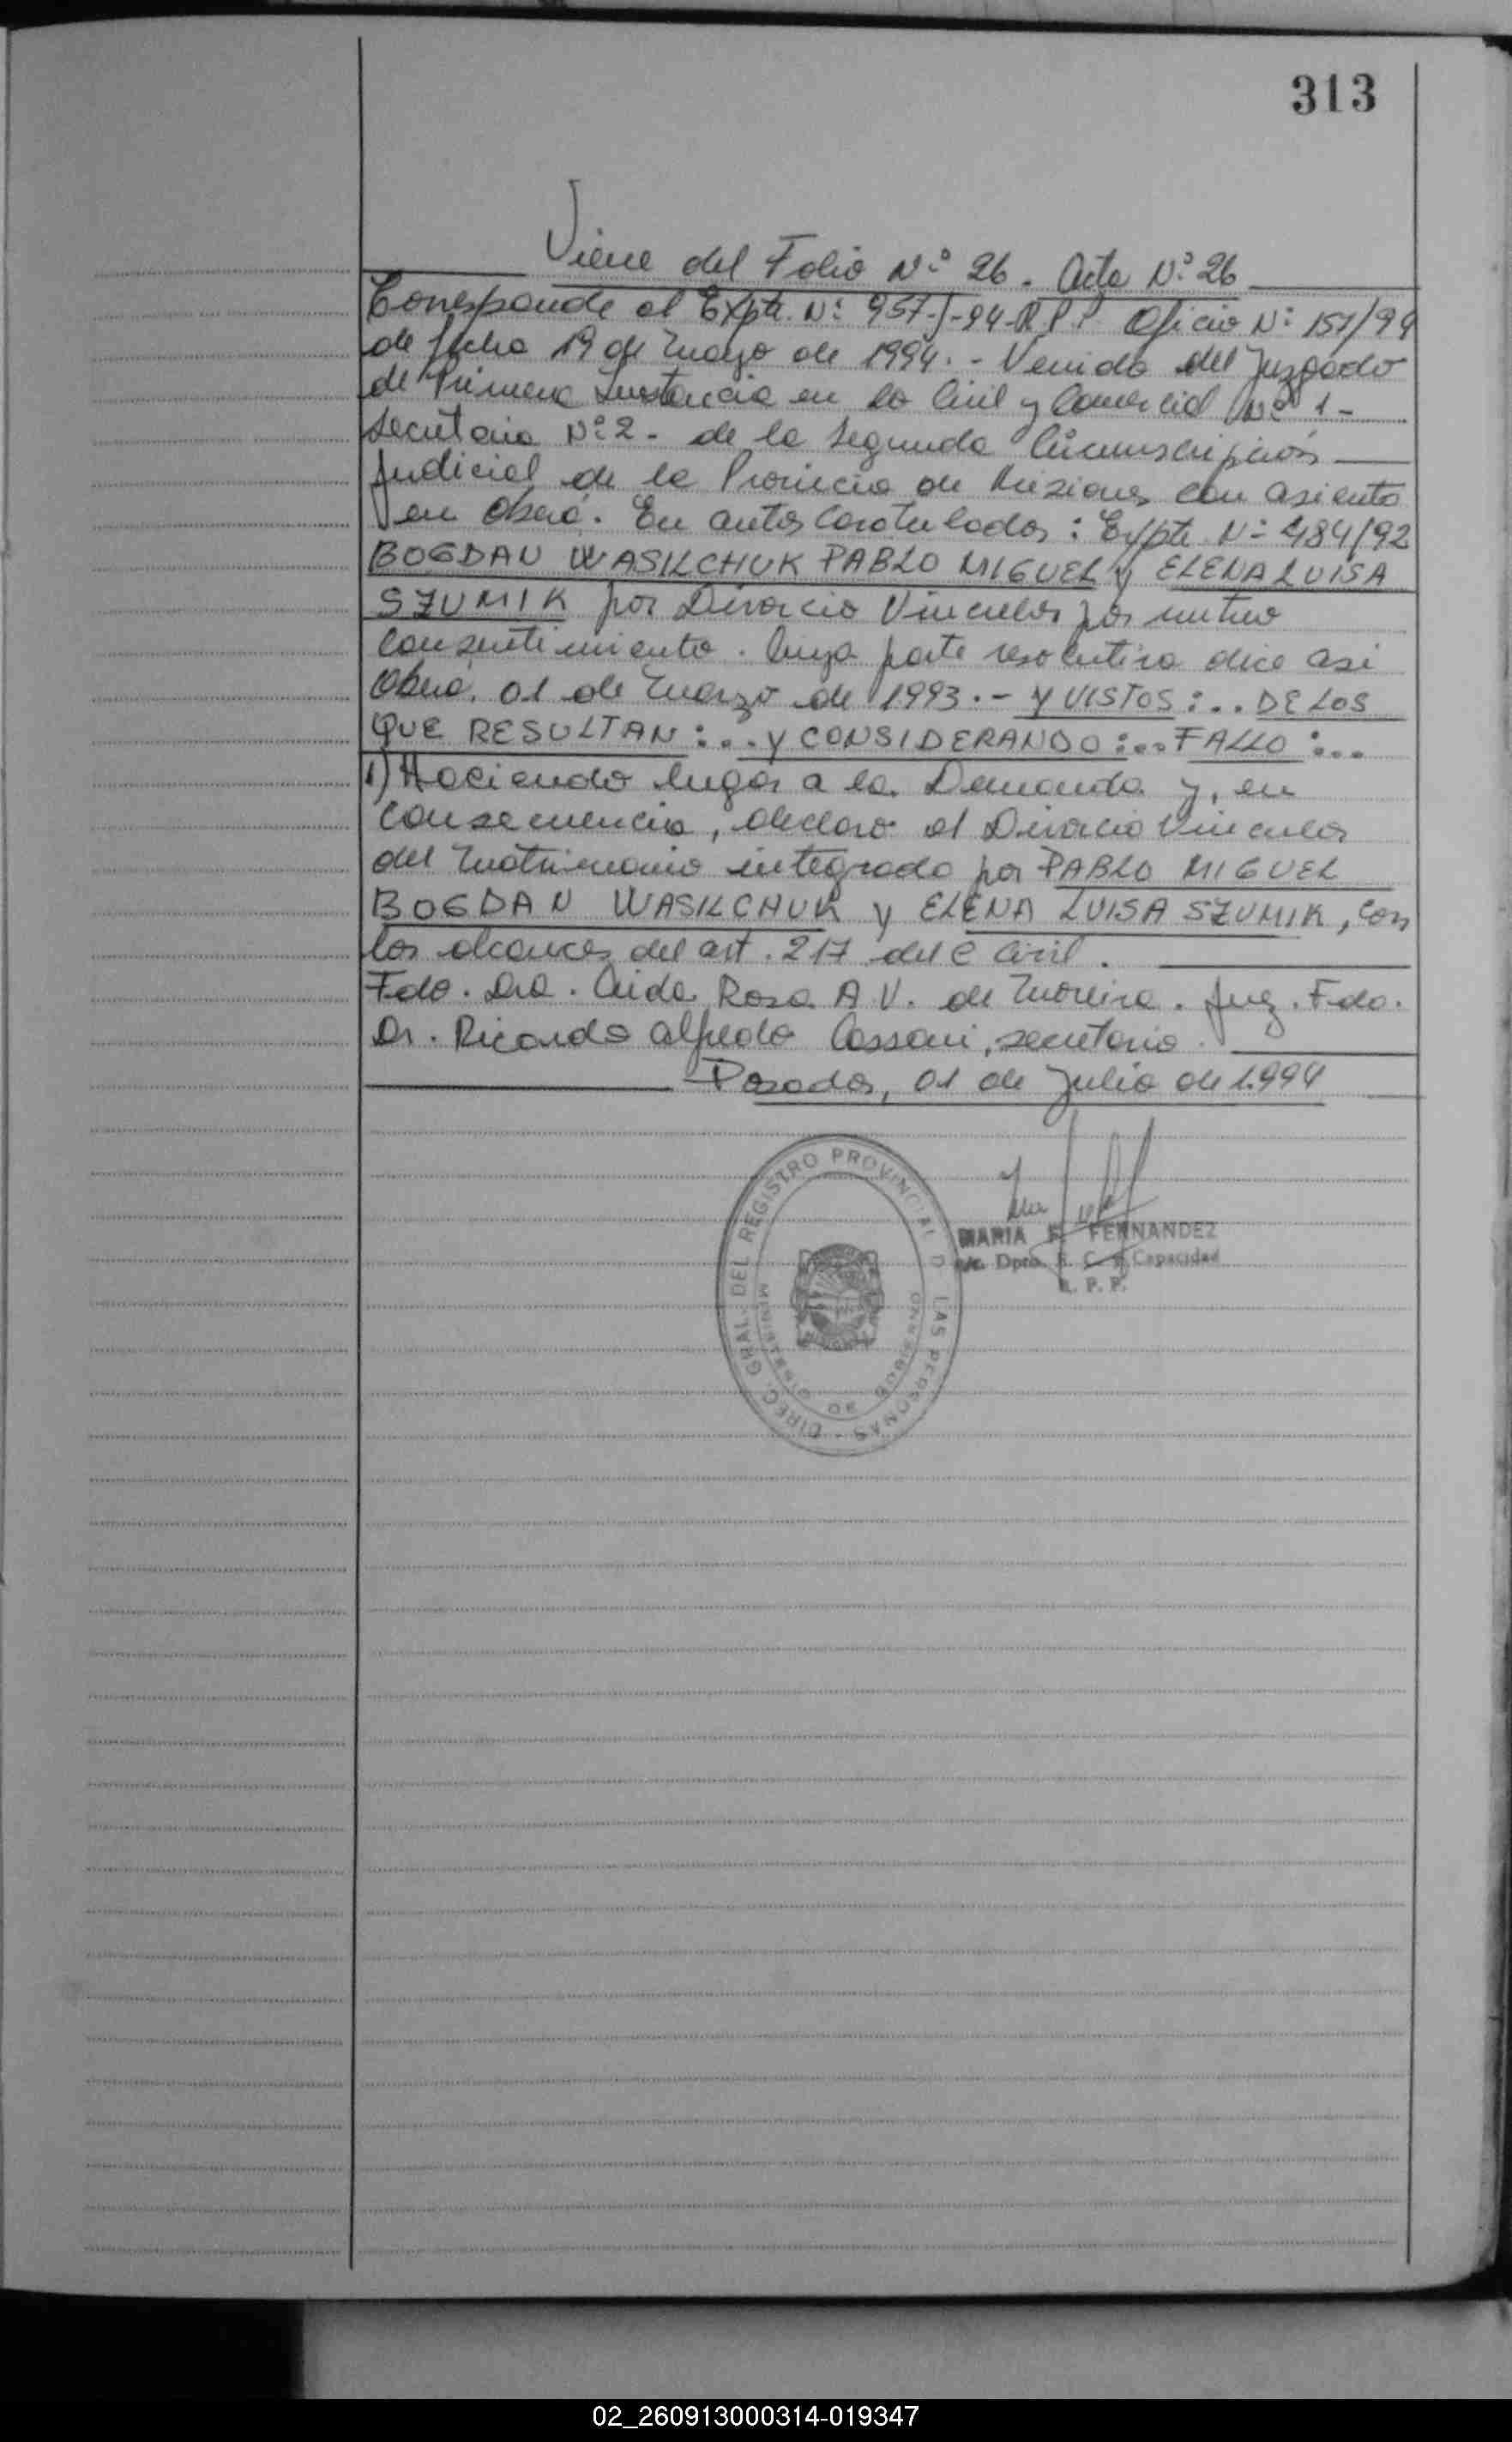 313
Viene del Folio Nº 26. Acta Nº 26
Corresponde al Expte. Nº 957-J-94-R.P.P. Oficio Nº 157/94
de fecha 19 de Marzo de 1994.- Venida del Juzgado
de Primera Instancia en lo Civil y Comercial Nº 1-
Secretaria Nº 2- de la Segunda Circunscripción
Judicial de la Provincia de Misiones con asiento
en Oberá. En autos Caratulados: Expte Nº 484/92
BOGDAN WASILCHUK PABLO MIGUEL y ELENA LUISA
SZUMIK por Divorcio Vincular por mutuo
Consentimiento. Cuya parte resolutiva dice asi
Oberá, 01 de Marzo de 1993.- Y VISTOS:.. DE LOS
QUE RESULTAN:... Y CONSIDERANDO:... FALLO:...
1) Haciendo lugar a la Demanda y, en
Consecuencia, declaro el Divorcio Vincular
del Matrimonio integrado por PABLO MIGUEL
BOGDAN WASILCHUK y ELENA LUISA SZUMIK, con
los alcances del art. 217 del C Civil.
Fdo. Dra. Aida Rosa A V. de Moreira. Juez. Fdo.
Dr. Ricardo Alfredo Cassoni, secretario.
Posadas, 01 de Julio de 1.994
DIREC. GRAL. DEL REGISTRO PROVINCIAL D LAS PERSONAS -
MINISTERIO DE GOBIERNO
MARIA F. FERNANDEZ
a/c. Dpro. R. C. y Capacidad
R. P. P.
02_260913000314-019347